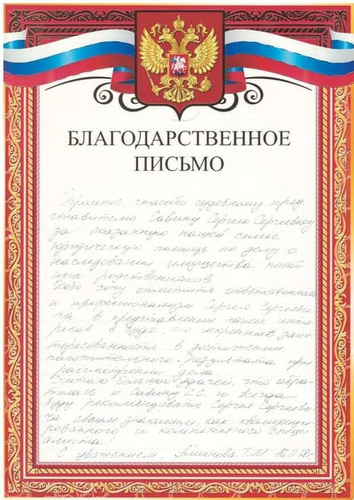 БЛАГОДАРСТВЕННОЕ
ПИСЬМО
Огромное спасибо судебному пред
ставителю Савину Сергею Сергеевичу
за оказанную нашей семье
юридическую помощь по делу о
наследовании имущества
родственников
хочу отметить ответственность
и профессионализм Сергея Сергееви
ча, в представлении наших инте
ресов в суде, его искреннюю заин
тересованность в достижении
положительного результата при
рассмотрении дела.
Считаю большой удачей, что обра
тилась к Савину С.С. и всегда
буду рекомендовать Сергея Сергееви
ча своим знакомым, как квалифици
рованного и компетентного специ
алиста.
С уважением, Т.М.